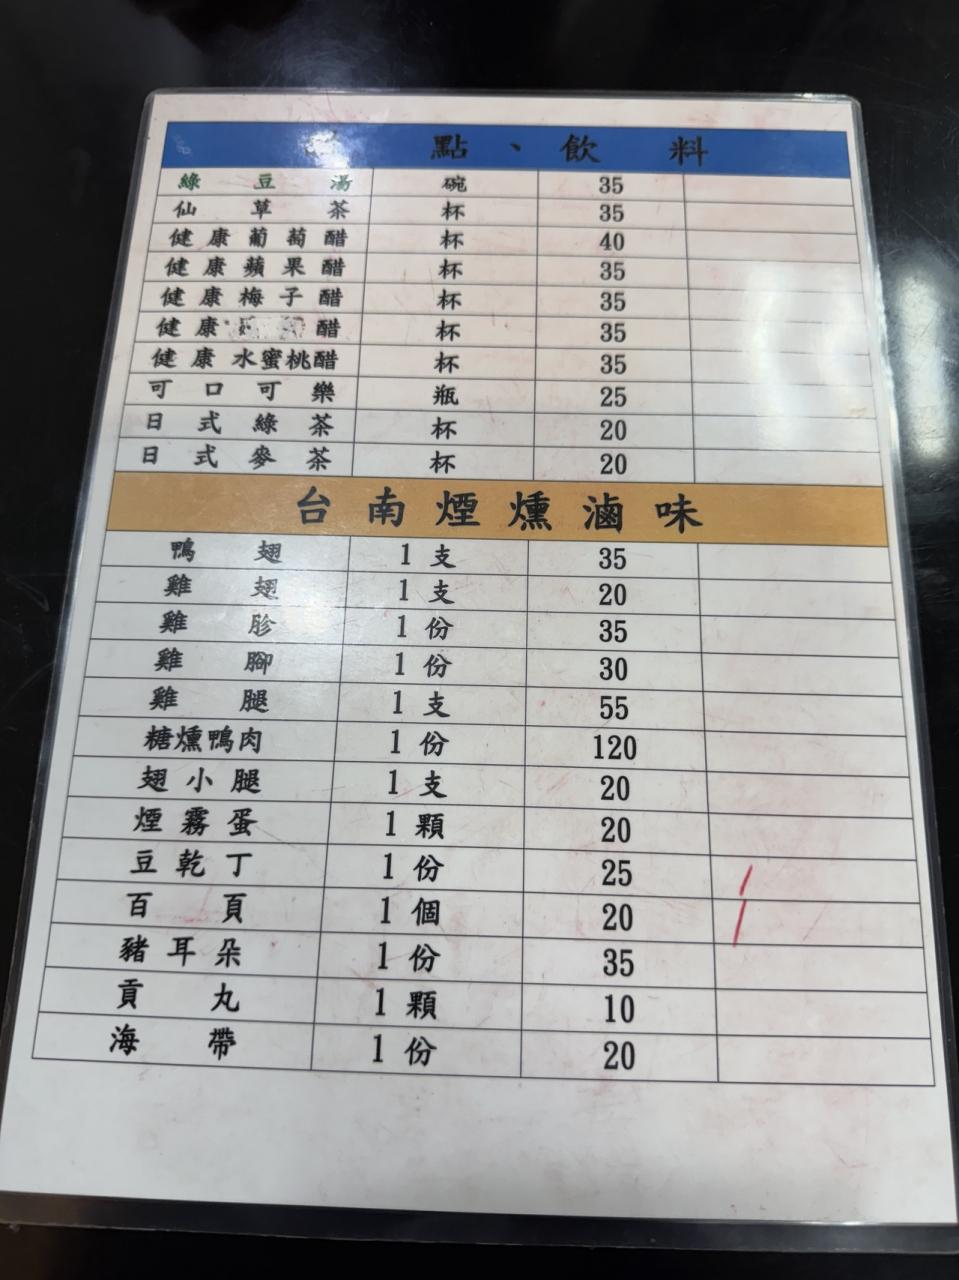 點、飲料
綠豆湯 碗 35
仙草茶 杯 35
健康葡萄醋 杯 40
健康蘋果醋 杯 35
健康梅子醋 杯 35
健康 醋 杯 35
健康水蜜桃醋 杯 35
可口可樂 瓶 25
日式綠茶 杯 20
日式麥茶 杯 20
台南煙燻滷味
鴨翅 1支 35
雞翅 1支 20
雞胗 1份 35
雞腳 1份 30
雞腿 1支 55
糖燻鴨肉 1份 120
翅小腿 1支 20
煙霧蛋 1顆 20
豆乾丁 1份 25 /
百頁 1個 20 /
豬耳朵 1份 35
貢丸 1顆 10
海帶 1份 20